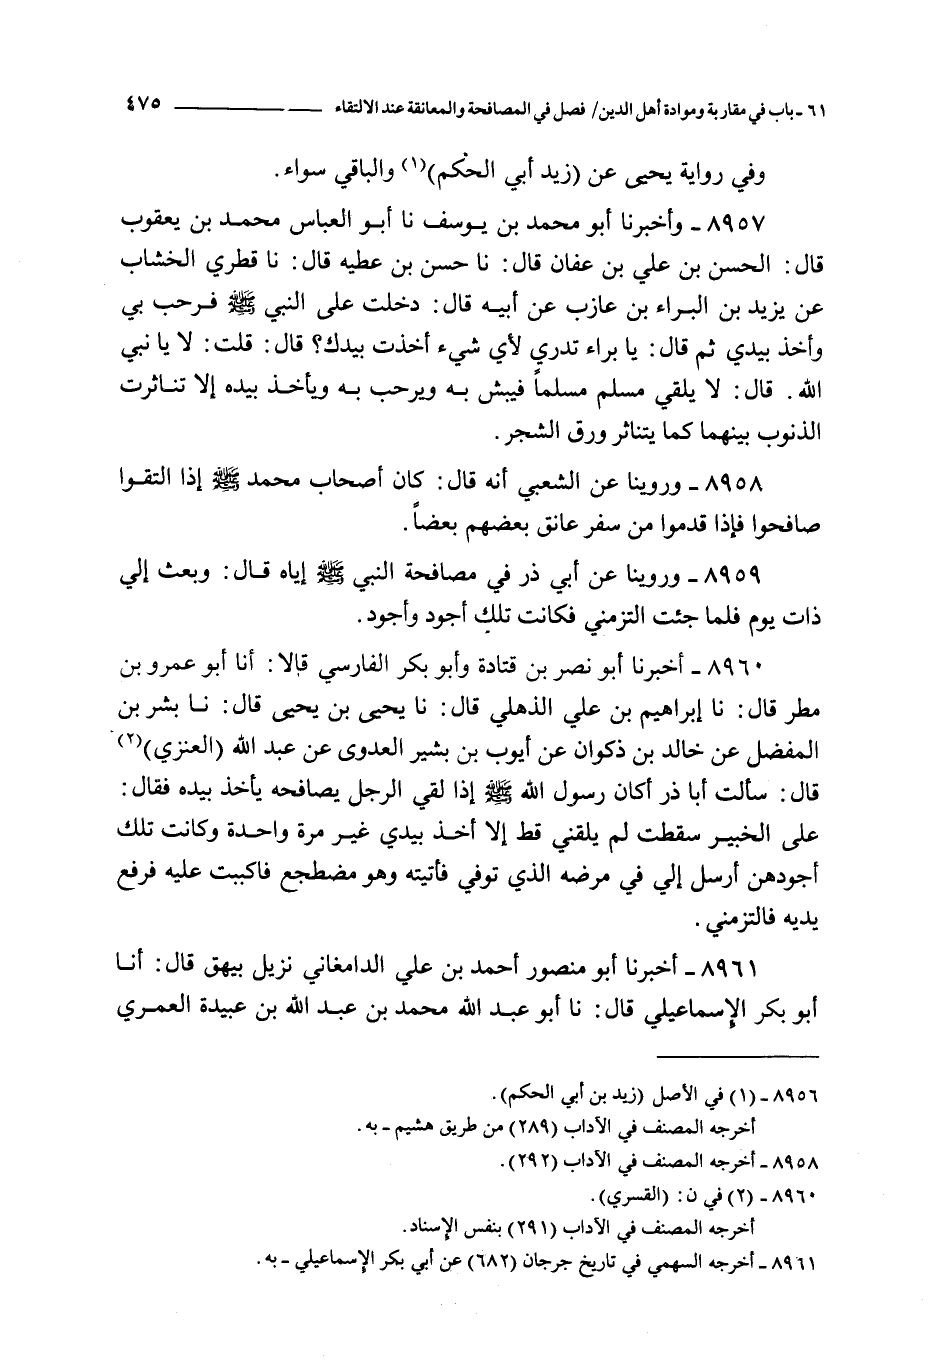 ٦١ ـ باب في مقاربة وموادة أهل الدين/ فصل في المصافحة والمعانقة عند الالتقاء ٤٧٥
وفي رواية يحيى عن (زيد أبي الحكم)(١) والباقي سواء.
٨٩٥٧ ـ وأخبرنا أبو محمد بن يوسف نا أبو العباس محمد بن يعقوب
قال: الحسن بن علي بن عفان قال: نا حسن بن عطيه قال: نا قطري الخشاب
عن يزيد بن البراء بن عازب عن أبيه قال: دخلت على النبي ﷺ فرحب بي
وأخذ بيدي ثم قال: يا براء تدري لأي شيء أخذت بيدك؟ قال: قلت: لا يا نبي
الله. قال: لا يلقي مسلم مسلماً فيبش به ويرحب به ويأخذ بيده إلا تناثرت
الذنوب بينهما كما يتناثر ورق الشجر.
٨٩٥٨ ـ وروينا عن الشعبي أنه قال: كان أصحاب محمد ﷺ إذا التقوا
صافحوا فإذا قدموا من سفر عانق بعضهم بعضاً.
٨٩٥٩ ـ وروينا عن أبي ذر في مصافحة النبي ﷺ إياه قال: وبعث إلي
ذات يوم فلما جئت التزمني فكانت تلك أجود وأجود.
٨٩٦٠ ـ أخبرنا أبو نصر بن قتادة وأبو بكر الفارسي قالا: أنا أبو عمرو بن
مطر قال: نا إبراهيم بن علي الذهلي قال: نا يحيى بن يحيى قال: نا بشر بن
المفضل عن خالد بن ذكوان عن أيوب بن بشير العدوى عن عبد الله (العنزي)(٢)
قال: سألت أبا ذر أكان رسول الله ﷺ إذا لقي الرجل يصافحه يأخذ بيده فقال:
على الخبير سقطت لم يلقني قط إلا أخذ بيدي غير مرة واحدة وكانت تلك
أجودهن أرسل إلي في مرضه الذي توفي فأتيته وهو مضطجع فاكببت عليه فرفع
يديه فالتزمني.
٨٩٦١ ـ أخبرنا أبو منصور أحمد بن علي الدامغاني نزيل بيهق قال: أنا
أبو بكر الإسماعيلي قال: نا أبو عبد الله محمد بن عبد الله بن عبيدة العمري
٨٩٥٦ ـ (١) في الأصل (زيد بن أبي الحكم).
أخرجه المصنف في الآداب (٢٨٩) من طريق هشيم ـ به.
٨٩٥٨ ـ أخرجه المصنف في الآداب (٢٩٢).
٨٩٦٠ ـ (٢) في ن: (القسري).
أخرجه المصنف في الآداب (٢٩١) بنفس الإسناد.
٨٩٦١ ـ أخرجه السهمي في تاريخ جرجان (٦٨٢) عن أبي بكر الإسماعيلي ـ به.